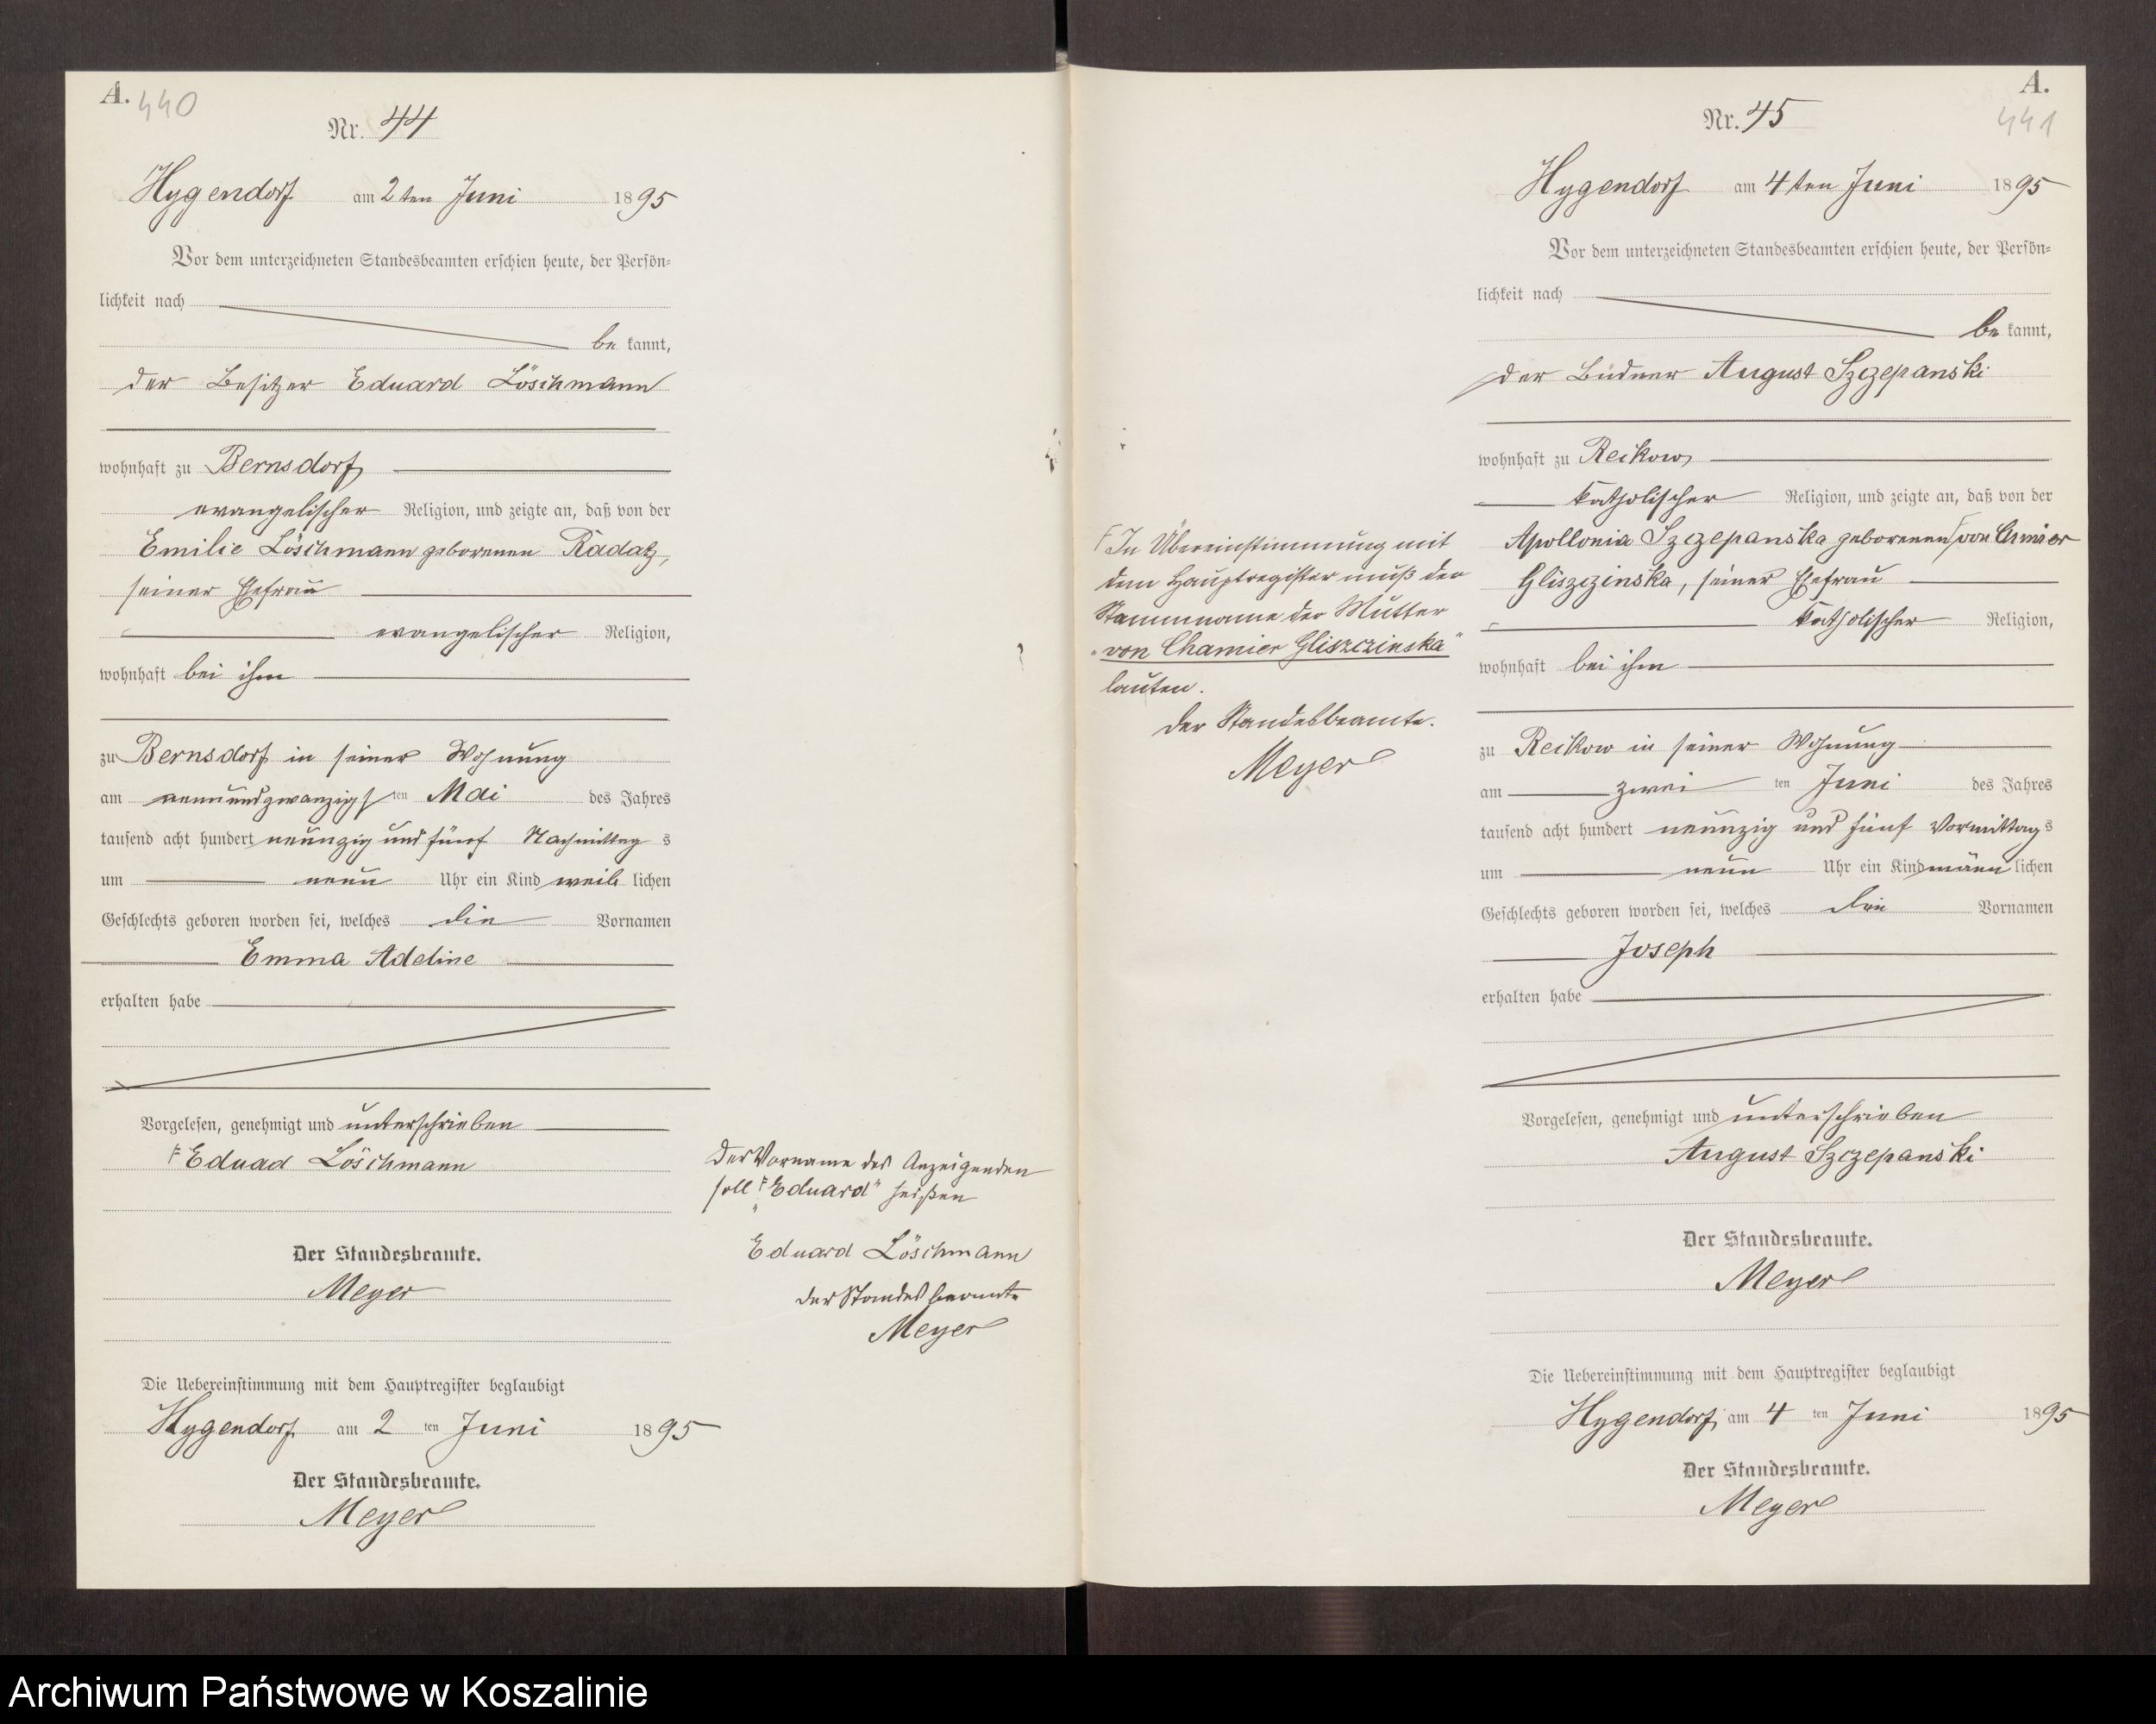 A. 440
Nr. 44
Hygendorf am 2ten Juni 1895
Vor dem unterzeichneten Standesbeamten erschien heute, der Persön-
lichkeit nach
be kannt,
der Besitzer Eduard Löschmann
wohnhaft zu Bernsdorf
evangelischer Religion, und zeigte an, daß von der
Emilie Löschmann geborenen Radatz,
seiner Ehefrau
evangelischer Religion,
wohnhaft bei ihm
zu Bernsdorf in seiner Wohnung
am neunundzwanzigsten Mai des Jahres
tausend acht hundert neunzig und fünf Nachmittags
um neun Uhr ein Kind weiblichen
Geschlechts geboren worden sei, welches die Vornamen
Emma Adeline
erhalten habe
Vorgelesen, genehmigt und unterschrieben
Eduad Löschmann
Der Standesbeamte.
Meyer
Die Uebereinstimmung mit dem Hauptregister beglaubigt
Hygendorf am 2 ten Juni 1895
Der Standesbeamte.
Meyer
Der Vorname des Anzeigenden
soll „Eduard“ heißen
Eduard Löschmann
Der Standesbeamte
Meyer
A.
441
Nr. 45
Hygendorf am 4ten Juni 1895
Vor dem unterzeichneten Standesbeamten erschien heute, der Persön-
lichkeit nach
be kannt,
der Büdner August Szczepanski
wohnhaft zu Reikow
katholischer Religion, und zeigte an, daß von der
Apollonia Szczepanska geborenen von Chmier
Gliszczinska, seiner Ehefrau
katholischer Religion,
wohnhaft bei ihm
zu Reikow in seiner Wohnung
am zwei ten Juni des Jahres
tausend acht hundert neunzig und fünf Vormittags
um neun Uhr ein Kind männlichen
Geschlechts geboren worden sei, welches den Vornamen
Joseph
erhalten habe
Vorgelesen, genehmigt und unterschrieben
August Szczepanski
Der Standesbeamte.
Meyer
Die Uebereinstimmung mit dem Hauptregister beglaubigt
Hygendorf, am 4 ten Juni 1895
Der Standesbeamte.
Meyer
In Übereinstimmung mit
dem Hauptregister muß der
Stammname der Mutter
„von Chamier Gliszczinska“
lauten.
Der Standesbeamte.
Meyer
Archiwum Państwowe w Koszalinie